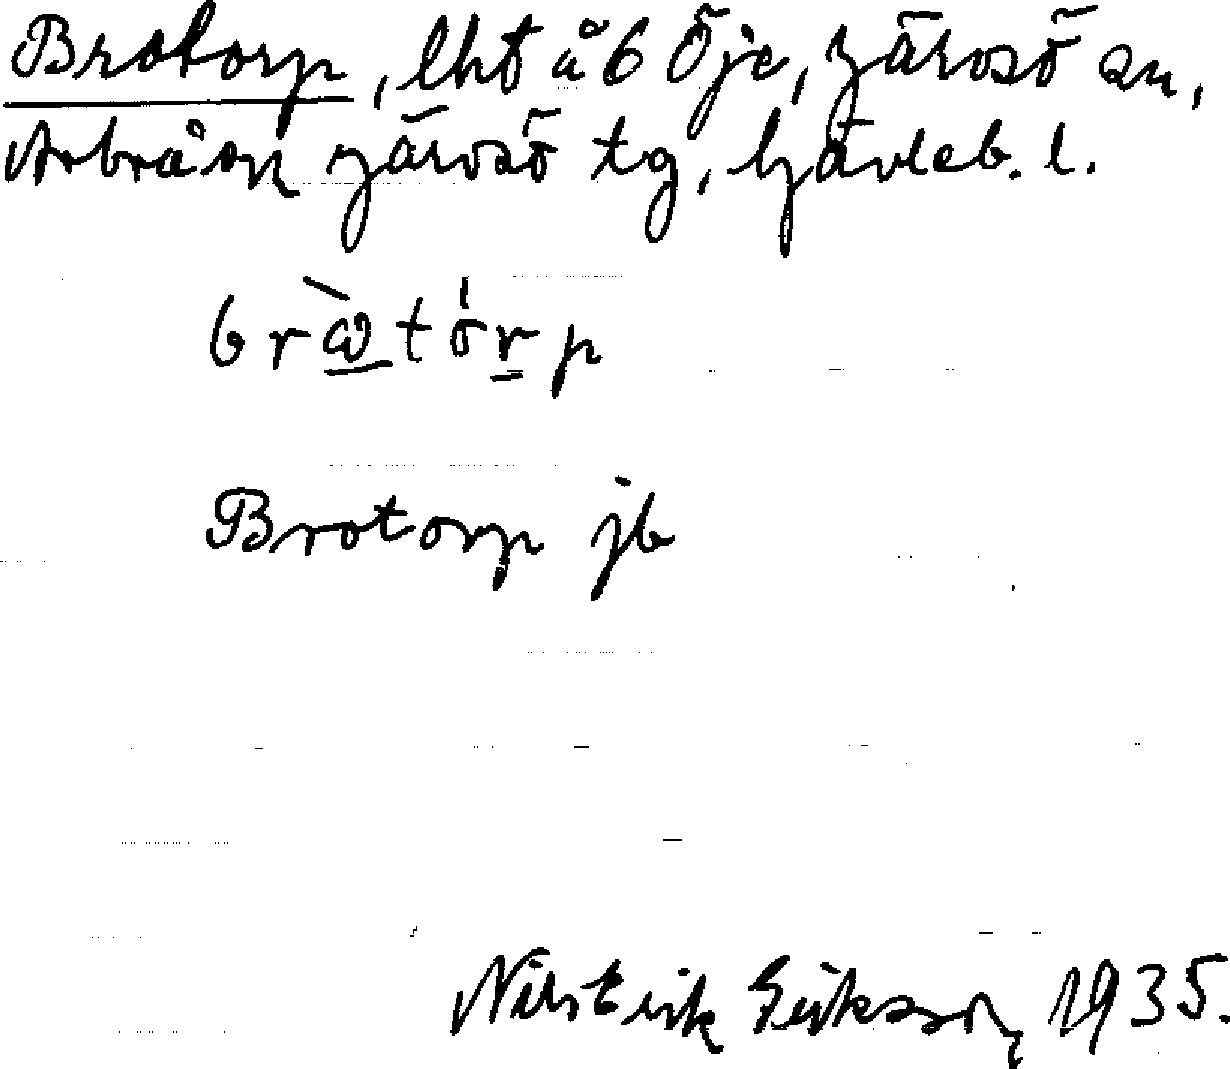 Brotorp, lht å b Öje, Järvsö sn,
Arbrå o Järvsö tg, Gävleb. l.
brὼtórp
Brotorp jb
Nils Erik Eriksson, 1935.